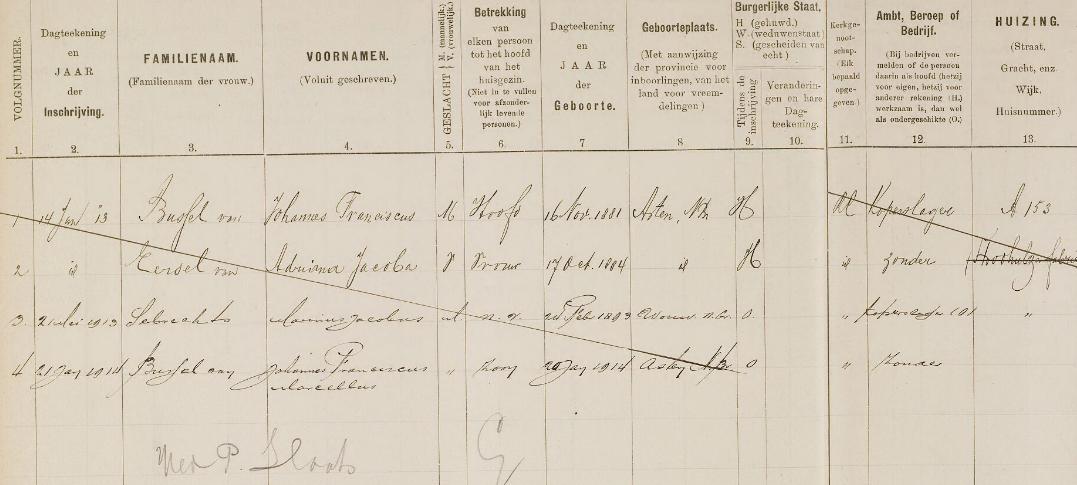 VOLGNUMMER.
Dagteekening
en
JAAR
der
Inschrijving.
FAMILIENAAM.
(Familienaam der vrouw.)
VOORNAMEN.
(Voluit geschreven.)
GESLACHT { M. (mannelijk.) V. (vrouwelijk.)
Betrekking
van
elken persoon
tot het hoofd
van het
huisgezin.
(Niet in te vullen
voor afzonder-
lijk levende
personen.)
Dagteekening
en
JAAR
der
Geboorte.
Geboorteplaats.
(Met aanwijzing
der provincie voor
inboorlingen, van het
land voor vreem-
delingen)
Burgerlijke Staat.
H (gehuwd.)
W (weduwenstaat)
S. (gescheiden van
echt)
Tijdens de
inschrijving
Veranderin-
gen en hare
Dag-
teekening.
Kerkge-
noot-
schap.
(Elk
bepaald
opge-
geven.)
Ambt, Beroep of
Bedrijf.
(Bij bedrijven ver-
melden of de persoon
daarin als hoofd (hetzij
voor eigen, hetzij voor
anderer rekening (H.)
werkzaam is, dan wel
als ondergeschikte (O.)
HUIZING.
(Straat,
Gracht, enz.
Wijk.
Huisnummer.)
1. 2. 3. 4. 5. 6. 7 8 9. 10. 11. 12. 13.
1 14 Jan '13 Bussel van Johannes Franciscus M Hoofd 16 Nov. 1881 Asten, Nbr H RK Koperslager A 153
2 id Eersel van Adriana Jacoba V Vrouw 17 Oct. 1884 id H id zonder
3. 21 Mei 1913 Sebrechts Marinus Jacobus M n. v. Feb 1893 Wouw n.br. O. " Koperslager "
4 21 Jan 1914 Bussel van Johannes Franciscus " Zoon 20 Jan 1914 Asten Nbr O " Zonder
Marcellus
P. Sloots